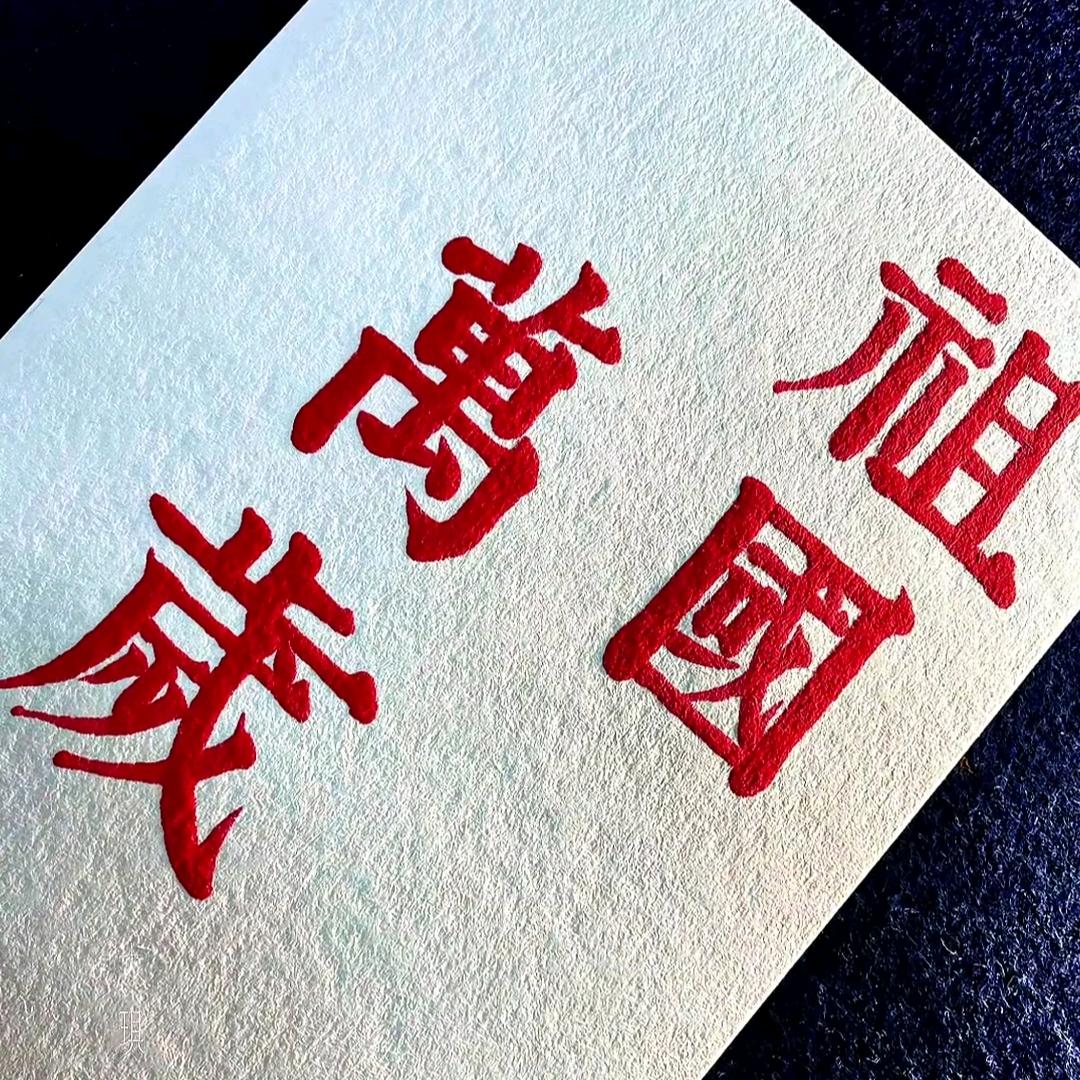 祖國
萬歲